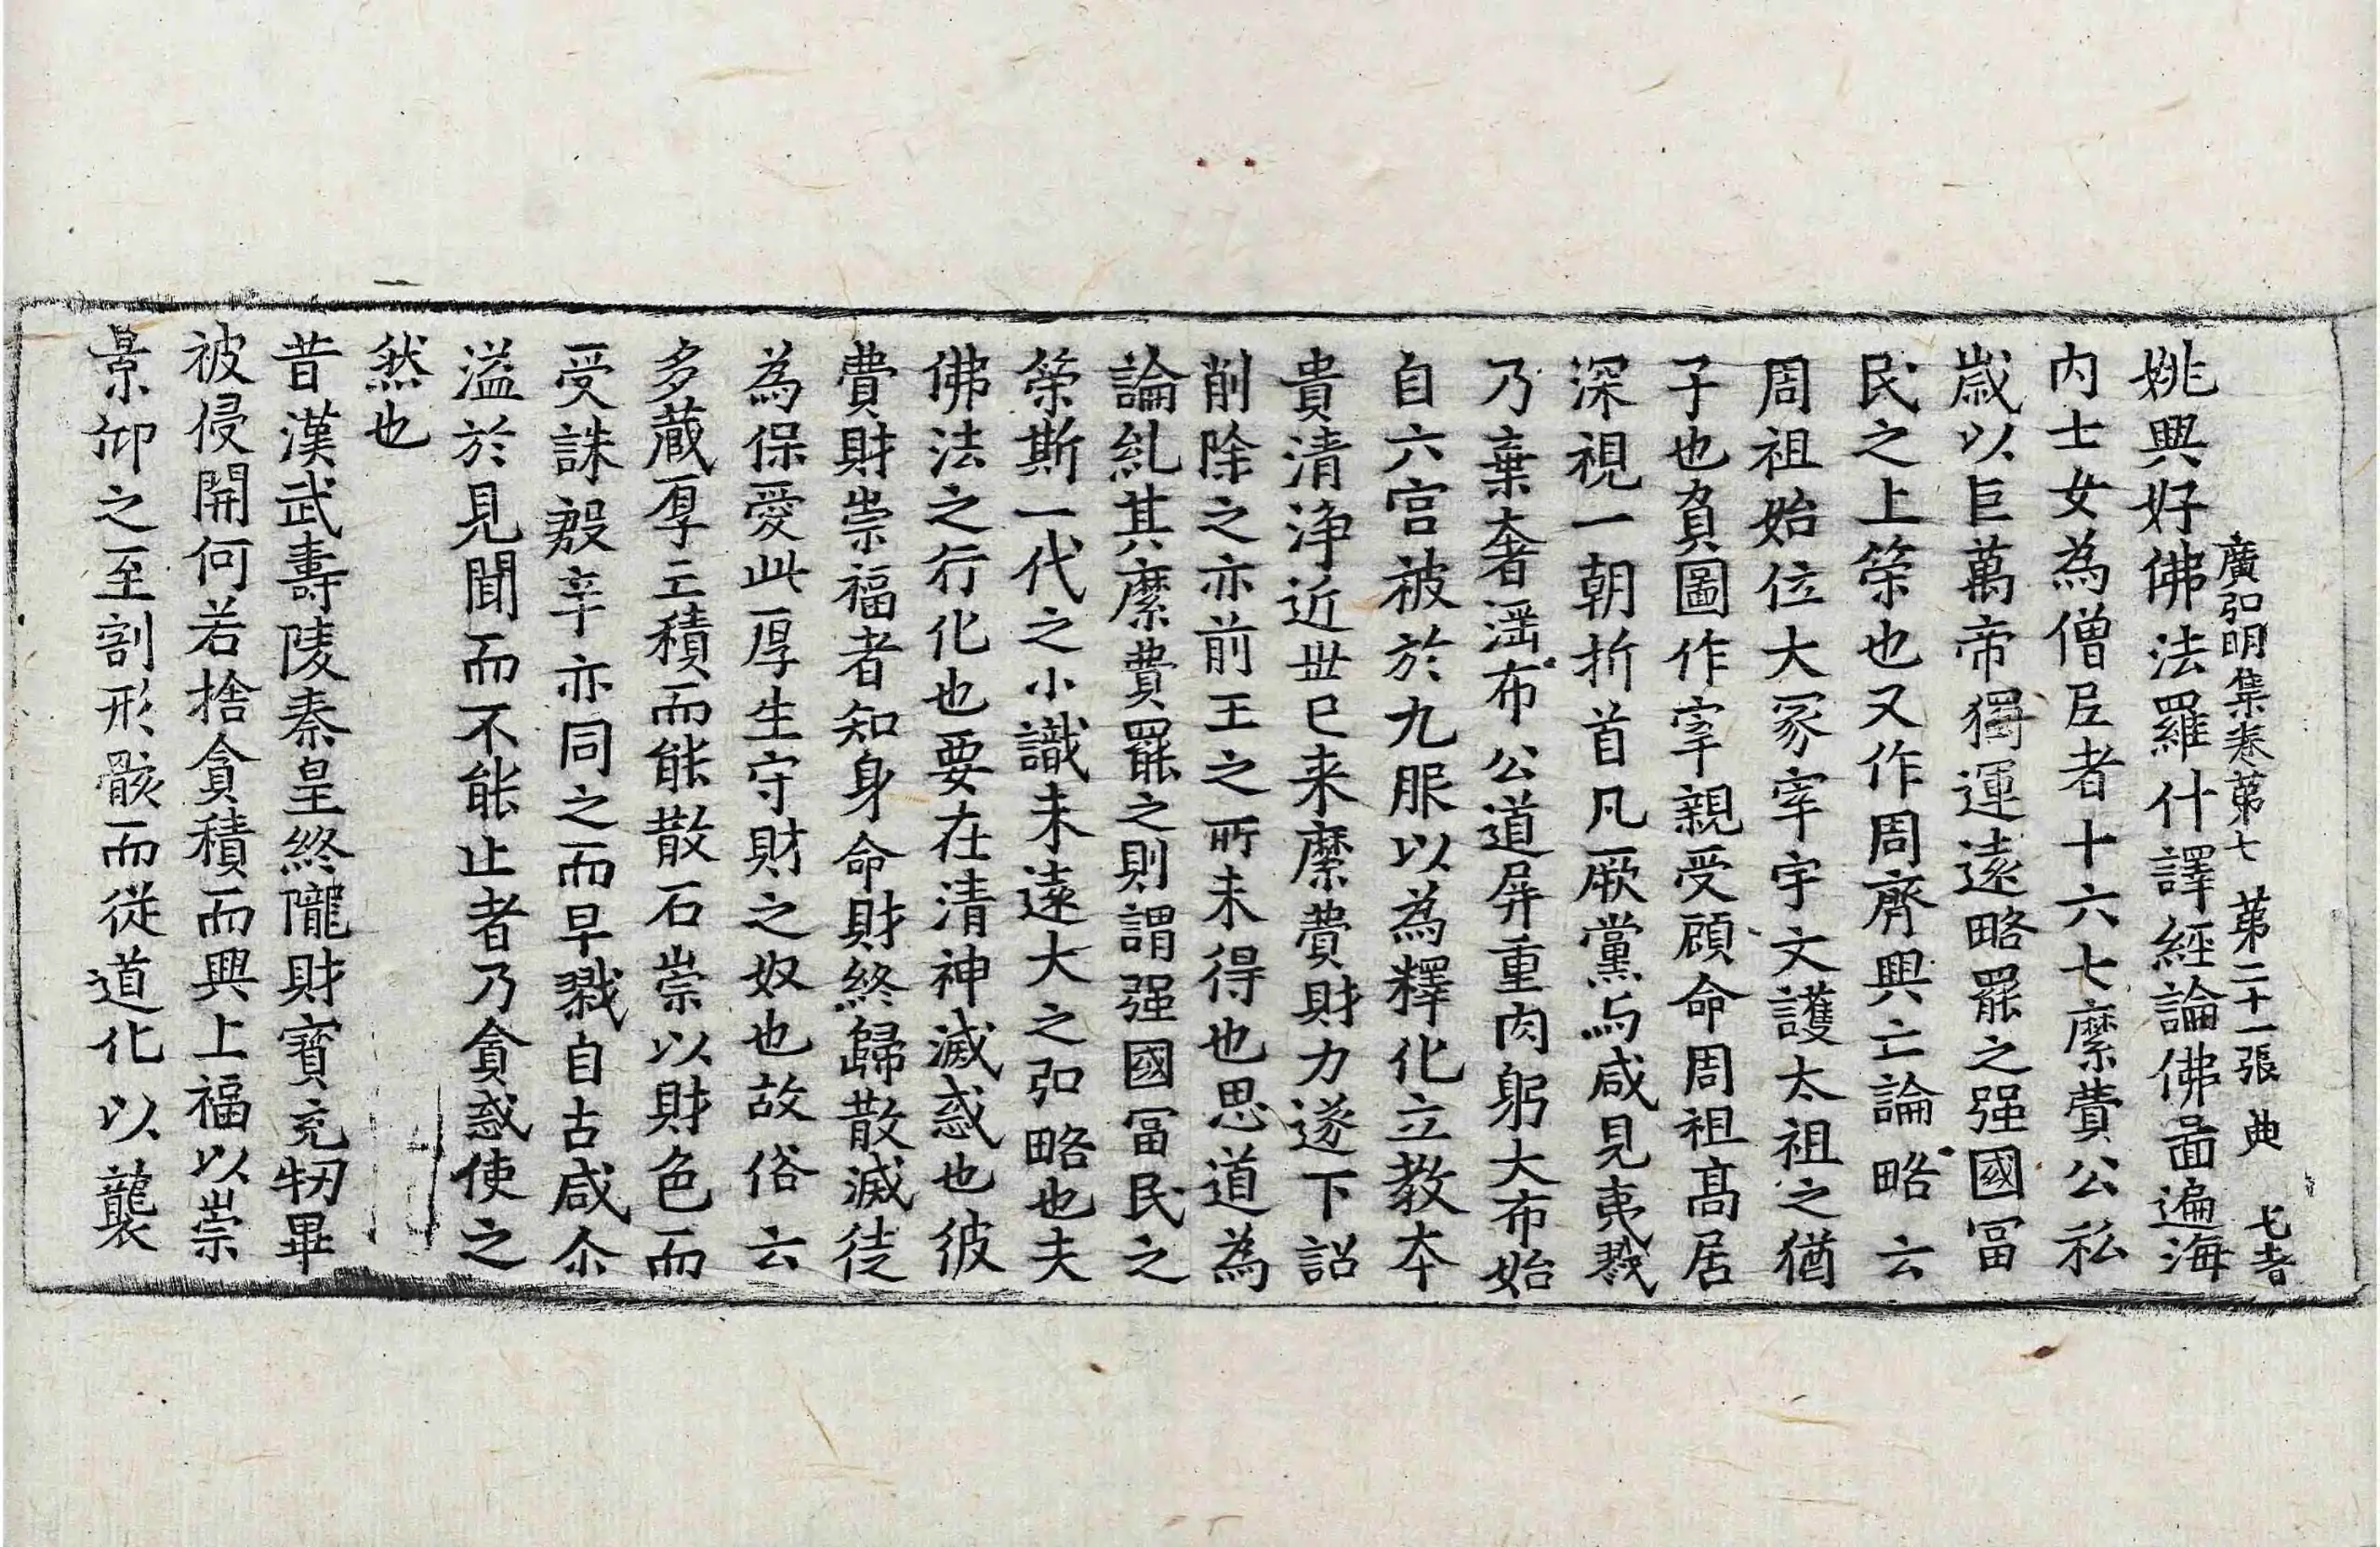 廣弘明集卷第七 第二十一張 典
姚興好佛法羅什譯經論佛啚遍海
内士女為僧尼者十六七糜費公私
歲以巨萬帝獨運遠略罷之强國冨
民之上筞也又作周齊興亡論略云
周祖始位大冢宰宇文護太祖之猶
子也負圖作宰親受顧命周祖髙居
深視一朝折首凡厥黨与咸見夷戮
乃棄奢滛布公道屏重肉躬大布始
自六宫被於九服以為釋化立教夲
貴清浄近丗已来糜費財力遂下詔
削除之亦前王之所未得也思道為
論糺其糜費罷之則謂强國冨民之
筞斯一代之小識未遠大之弘略也夫
佛法之行化也要在清神滅惑也彼
費財崇福者知身命財終歸散滅徒
為保愛此厚生守財之奴也故俗云
多蔵厚亡積而能散石崇以財色而
受誅殷辛亦同之而早戮自古咸尒
溢於見聞而不能止者乃貪惑使之
然也
昔漢武壽陵秦皇終隴財寳充牣畢
被侵開何若捨貪積而興上福以崇
景仰之至割形骸而従道化以襲